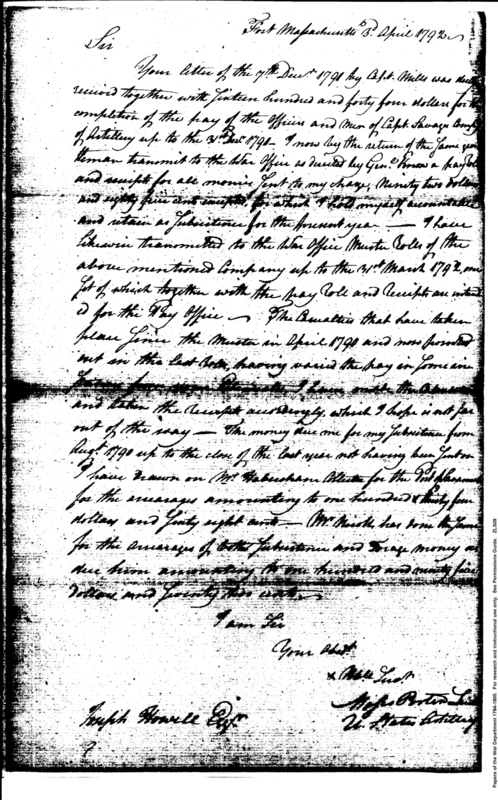 Fort Massachusetts 3d April 1792
Sir
Your letter of the 7th Decr 1791 by Capt. Mills was duly
received together with Sixteen hundred and forty four dollars for the
completion of the pay of the Officers and Men of Capt. Savage Company
of Artillery up to the 31 Decr 1790 – I now by the return of the same gen
tleman transmit to the War Office as directed by Genl Knox a pay Roll
and receipts for all monies sent to my charge, Ninety two dollars
and eighty five cent excepted for which I hold myself accountable
and retain as Subsistence for the present year — I have
likewise transmitted to the War Office Muster Rolls of the
above mentioned Company up to the 31st March 1792, one
set of which together with the pay Roll and Receipts are intend
ed for the Pay Office — The Casualties that have taken
place since the Muster in April 1790 and now pointed
out in the last Rolls, having varied the pay in some in
I have made the
and taken the Receipts accordingly, which I hope is not far
out of the way — The money due me for my Subsistence from
Augt 1790 up to the close of the last year not having been sent on
I have drawn on Mr Habersham for the
for the arrearages amounting to one hundred & thirty four
dollars and Sixty eight cents — Mr has done the same
for the arrearages of both Subsistence and Forage money as
due him amounting to one hundred and ninety five
dollars and Seventy two cents
I am Sir
Your Obedt
& Hble Servt
Moses Porter Lieut
U. States Artillery
Joseph Howell Esqr
Papers of the War Department 1784-1800. For research and instructional use only. See Permissions Guide. ZLS09